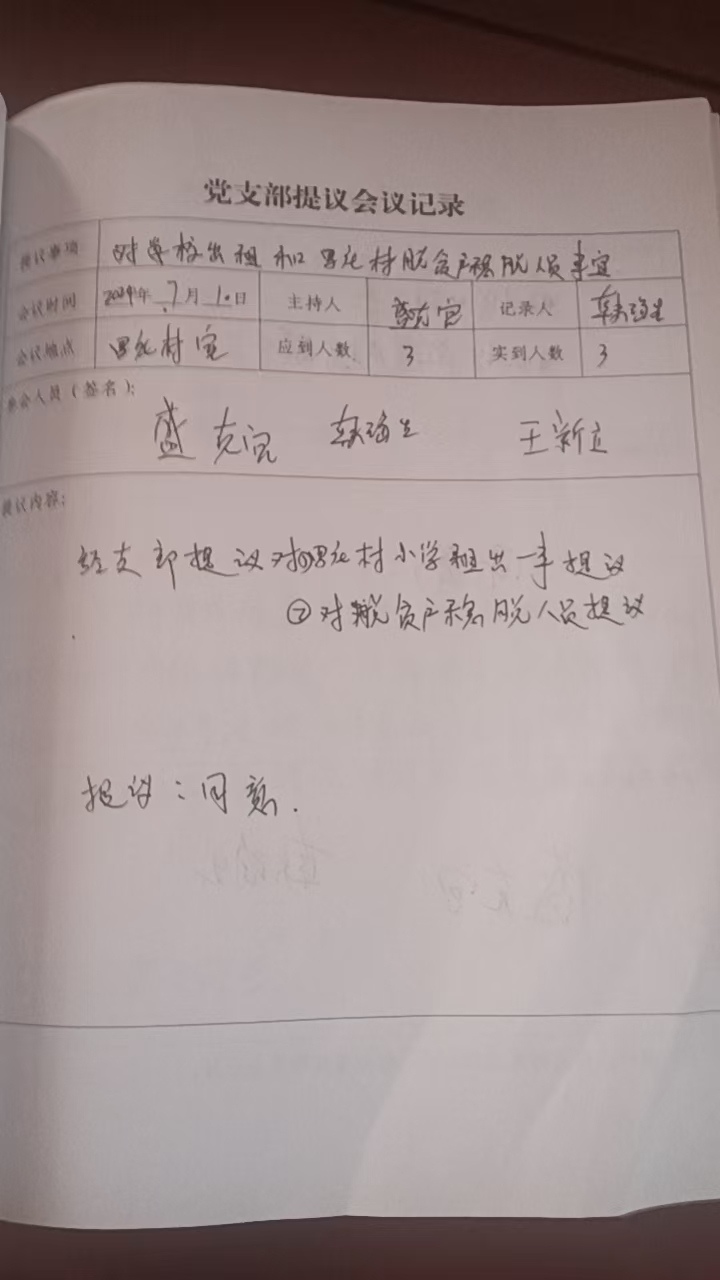 党支部提议会议记录
提议事项 对学校出租和 村脱贫户稳脱人员事宜
会议时间 2024年7月10日 主持人 盛克宽 记录人
会议地点 村室 应到人数 3 实到人数 3
参会人员（签名）：
盛克宽 王新立
提议内容：
经支部提议对 村小学租出一事提议
②对脱贫户稳脱人员提议
提议：同意.